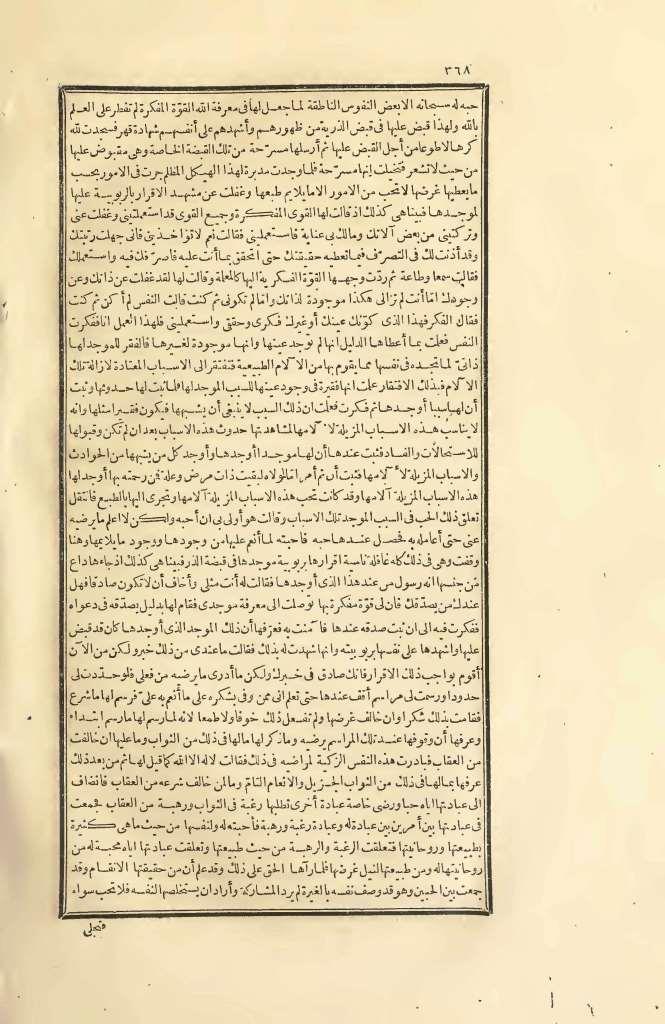 ٣٦٨
حبه له سبحانه الا بعض النفوس الناطقة لما جعل لها فى معرفة الله القوّة المفكرة لم تفطر على العلم
بالله ولهذا قبض عليها فى قبض الذرية من ظهورهم وأشهدهم على أنفسهم شهادة قهر فسجدت لله
كرها لا طوعا من أجل القبض عليها ثم أرسلها مسرّحة من تلك القبضة الخاصة وهى مقبوض عليها
من حيث لا تشعر فتخيلت انها مسرّحة فلما وجدت مدبرة لهذا الهيكل المظلم جرت فى الامور بحسب
ما يعطيها غرضها لا تحب من الامور الا ما يلايم طبعها وغفلت عن مشهد الاقرار بالربوبية عليها
لموجدها فبينا هى كذلك اذ قالت لها القوى المفكرة وجميع القوى قد استعملتينى وغفلت عنى
وتركتينى من بعض آلاتك ومالك بى عناية فاستعملينى فقالت نعم لا تؤاخذينى فانى جهلت رتبتك
وقد أذنت لك فى التصرّف فيما تعطيه حقيقتك حتى أتحقق بما أنت عليه فاصرّفك فيه واستعملك
فقالت سمعا وطاعة ثم ردّت وجهها القوّة الفكرية اليها كالمعلمة وقالت لها لقد غفلت عن ذاتك وعن
وجودك امّا أنت لم تزالى هكذا موجودة لذاتك واما لم تكونى ثم كنت قالت النفس لم أكن ثم كنت
فقال الفكر فهذا الذى كوّنك عينك أو غيرك فكرى وحققى واستعملينى فلهذا العمل انا ففكرت
النفس فعلمت بما أعطاها الدليل انها لم توجد عينها وانها موجودة لغيرها فالفقر للموجد لها
ذاتىّ لما تجده فى نفسها مما يقوم بها من الآلام الطبيعية فتفتقر الى الاسباب المعتادة لازالة تلك
الآلام فبذلك الافتقار علمت انها فقيرة فى وجود عينها للسبب الموجد لها فلما ثبت لها حدوثها وثبت
أن لها سببا أوجدها ثم فكرت فعلمت ان ذلك السبب لا ينبغى أن يشبهها فيكون فقيرا مثلها وانه
لا يناسب هذه الاسباب المزيلة لآلامها لمشاهدتها حدوث هذه الاسباب بعد ان لم تكن وقبولها
للاستحالات والفساد فثبت عندها أن لها موجدا أوجدها وأوجد كل من يشبهها من الحوادث
والاسباب المزيلة لآلامها فثبت أن ثم أمرا ما لولاه لبقيت ذات مرض وعلة فمن رحمته بها أوجد لها
هذه الاسباب المزيلة آلامها وقد كانت تحب هذه الاسباب المزيلة آلامها وتجرى اليها بالطبع فانتقل
تعلق ذلك الحب فى السبب الموجد تلك الاسباب وقالت هو أولى بى ان أحبه ولكن لا اعلم ما يرضيه
عنى حتى أعامله به فحصل عندها حبه فأحبته لما أنعم عليها من وجودها ووجود ما يلايمها وهنا
وقفت وهى فى ذلك كله غافلة ناسية اقرارها بربوبية موجدها فى قبضة الذر فبينا هى كذلك اذ جاءها داع
من جنسها انه رسول من عند هذا الذى أوجدها فقالت له أنت مثلى وأخاف أن لا تكون صادقا فهل
عندك من يصدّقك فان لى قوّة مفكرة بها توصلت الى معرفة موجدى فقام لها بدليل يصدّقه فى دعواه
ففكرت فيه الى ان ثبت صدقه عندها فآمنت به فعرّفها أن ذلك الموجد الذى أوجدها كان قد قبض
عليها وأشهدها على نفسها بربوبيته وانها شهدت له بذلك فقالت ما عندى من ذلك خبر ولكن من الآن
أقوم بواجب ذلك الاقرار فانك صادق فى خبرك ولكن ما أدرى ما يرضيه من فعلى فلو حدّدت لى
حدودا ورسمت لى مراسم أقف عندها حتى تعلم انى ممن وفى بشكره على ما أنعم به علىّ فرسم لها ما شرع
فقامت بذلك شكرا وان خالف غرضها ولم تفعل ذلك خوفا ولا طمعا لانه لما رسم لها ما رسم ابتداء
وعرفها أن وقوفها عند تلك المراسم يرضيه وما ذكر لها مالها فى ذلك من الثواب وما عليها ان خالفت
من العقاب فبادرت هذه النفس الزكية لمراضيه فى ذلك فقالت لا اله الا الله كما قيل لها ثم من بعد ذلك
عرفها بما لها فى ذلك من الثواب الجزيل والانعام التامّ وما لمن خالف شرعه من العقاب فانضاف
الى عبادتها اياه حبا ورضى خاصة عبادة أخرى تطلبها رغبة فى الثواب ورهبة من العقاب فجمعت
فى عبادتها بين أمرين بين عبادة له وعبادة رغبة ورهبة فأحبته له ولنفسها من حيث ما هى كثيرة
بطبيعتها وروحانيتها فتعلقت الرغبة والرهبة من حيث طبيعتها وتعلقت عبادتها اياه محبة له من
روحانيتها له ومن طبيعتها لنيل غرضها فلما رآها الحق على ذلك وقد علم أن من حقيقتها الانقسام وقد
جمعت بين الحبين وهو قد وصف نفسه بالغيرة لم يرد المشاركة وأراد أن يستخلصها لنفسه فلا تحب سواه
فتجلى